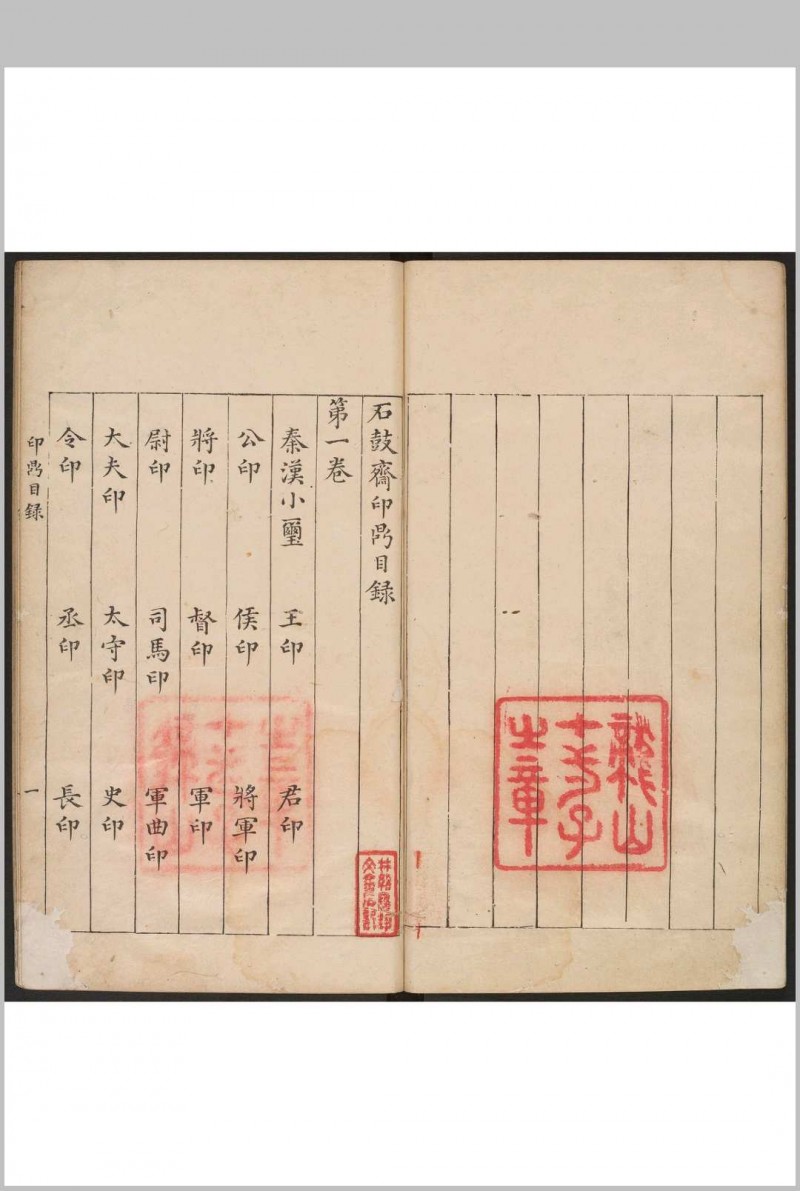 龍山
之章
石鼓齋印鼎目録
第一卷
秦漢小璽 王印 君印
公印 侯印 將軍印
將印 督印 軍印
尉印 司馬印 軍曲印
大夫印 太守印 史印
令印 丞印 長印
印鼎目録 一